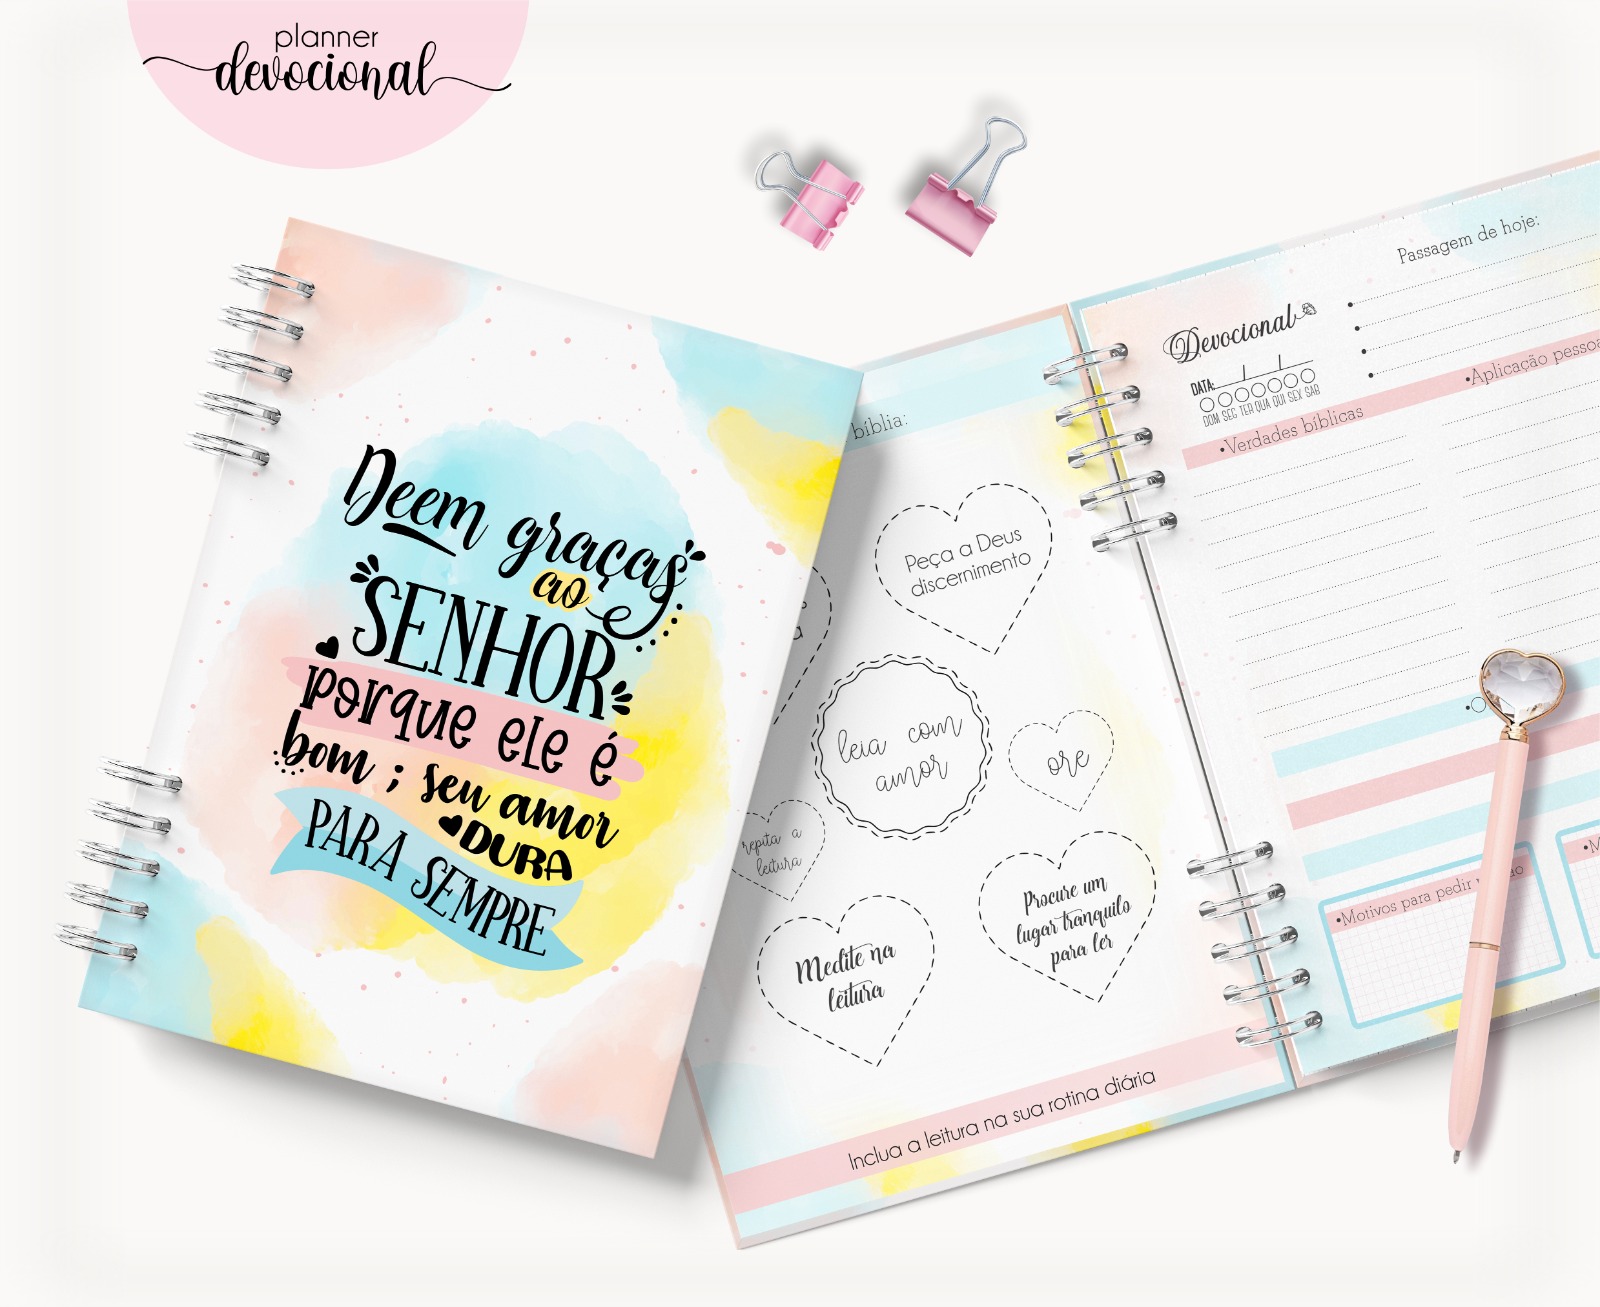 planner
devocional
Deem graças
ao
SENHOR
porque ele é
bom ; seu amor
DURA
PARA SEMPRE
bíblia:
Peça a Deus
discernimento
leia com
amor
ore
repita a
leitura
Procure um
lugar tranquilo
para ler
Medite na
leitura
Inclua a leitura na sua rotina diária
Devocional
DATA:
DOM SEG TER QUA QUI SEX SAB
Passagem de hoje:
•Verdades bíblicas
•Aplicação
•Motivos para pedir